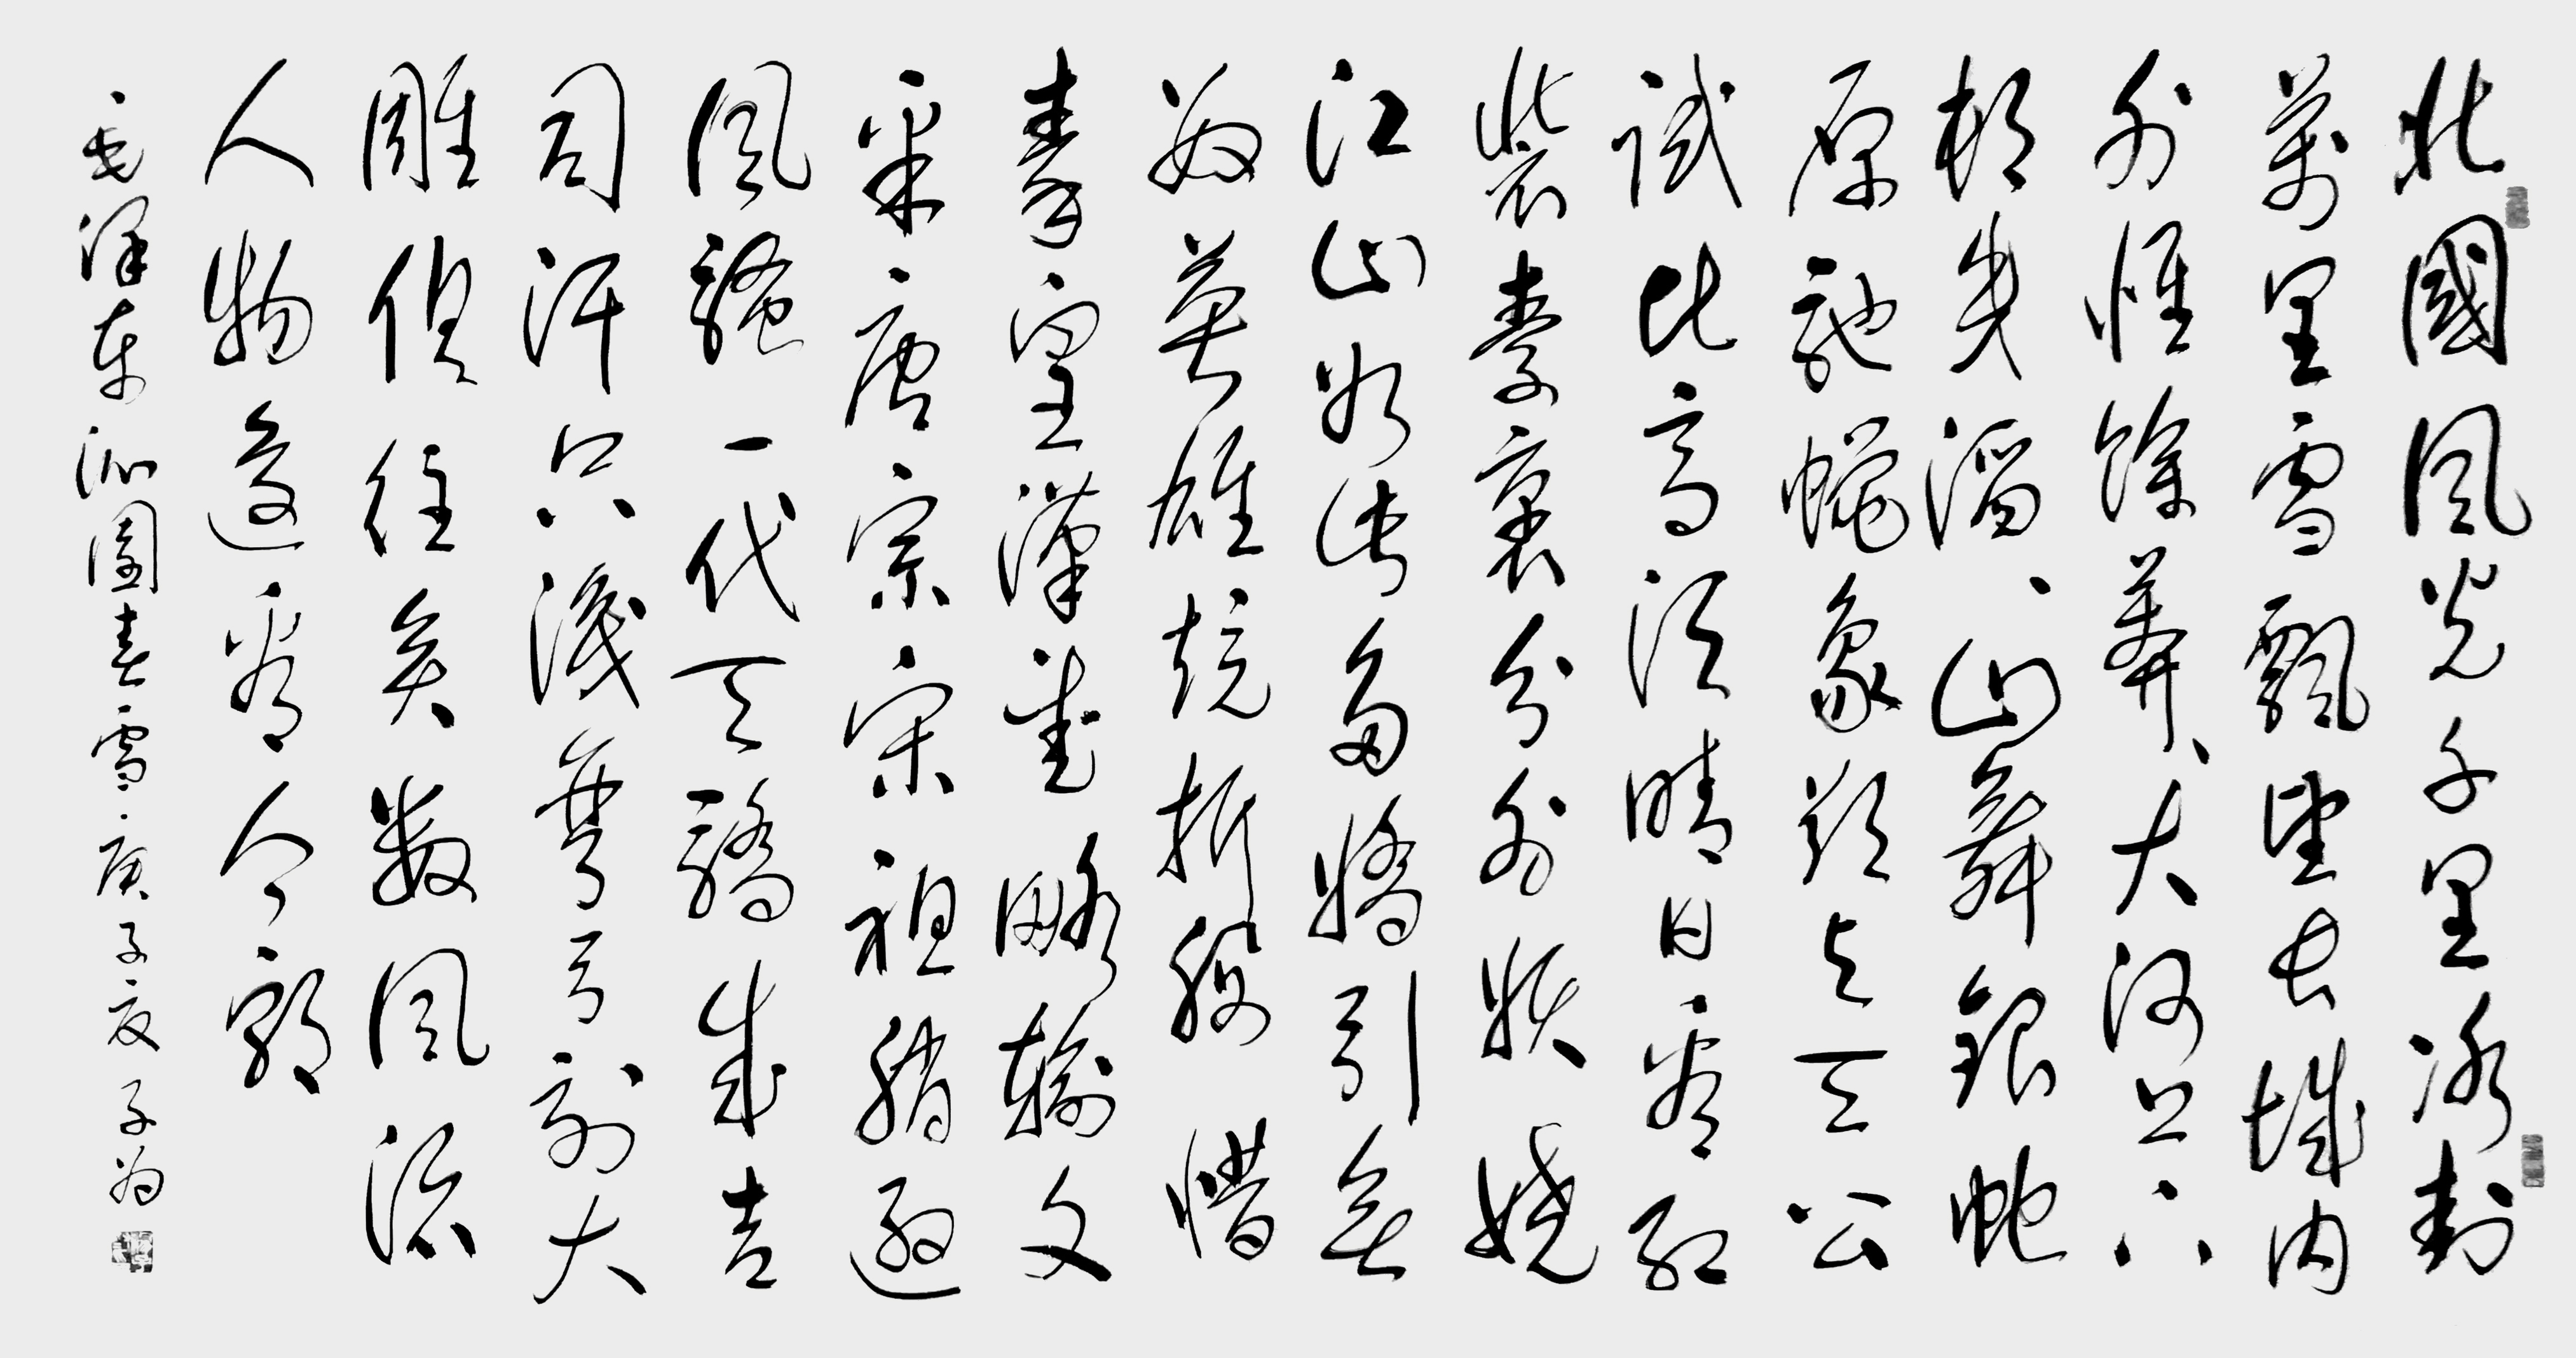 北國風光千里冰封
萬里雪飄望長城內
外惟餘莽、大河上下
頓失滔、山舞銀蛇
原馳蠟象欲與天公
試比高須晴日看紅
裝素裹分外妖嬈
江山如此多嬌引無
數英雄競折腰惜
秦皇漢武略輸文
采唐宗宋祖稍遜
風騷一代天驕成吉
司汗只識彎弓射大
雕俱往矣數風流
人物還看今朝
毛澤東沁園春雪庚子夏子為